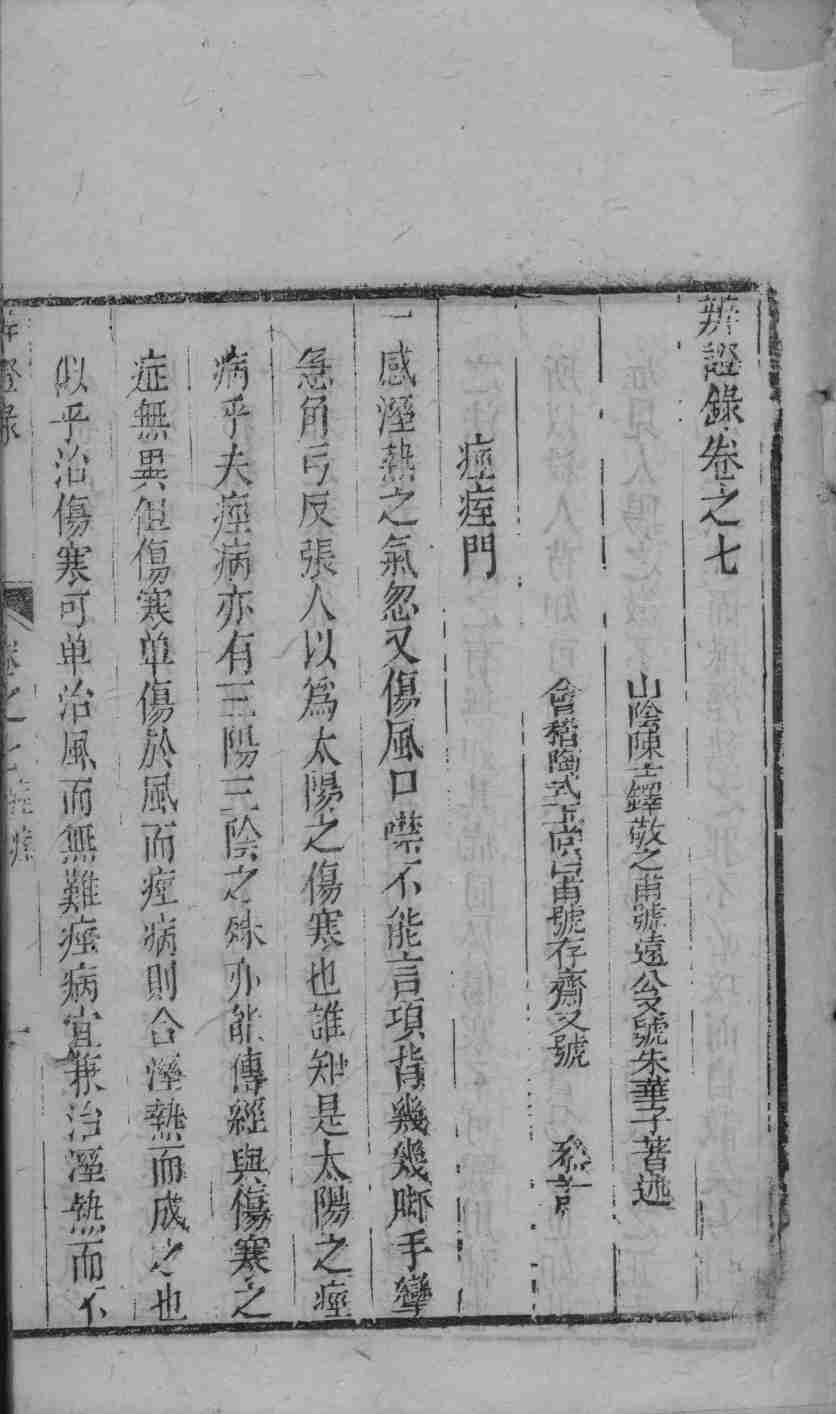 辨證錄卷之七
山陰陳士鐸敬之甫號遠公又號朱華子著述
會稽陶式玉尚白甫號存齋又號 參訂
痙痓門
一感溼熱之氣忽又傷風口噤不能言項背幾幾脚手攣
急角弓反張人以爲太陽之傷寒也誰知是太陽之痙
病乎夫痙病亦有三陽三陰之殊亦能傳經與傷寒之
症無異但傷寒单傷於風而痙病則合溼熱而成之也
似乎治傷寒可单治風而無難痙病宜兼治溼熱而不
辨證錄 卷之七